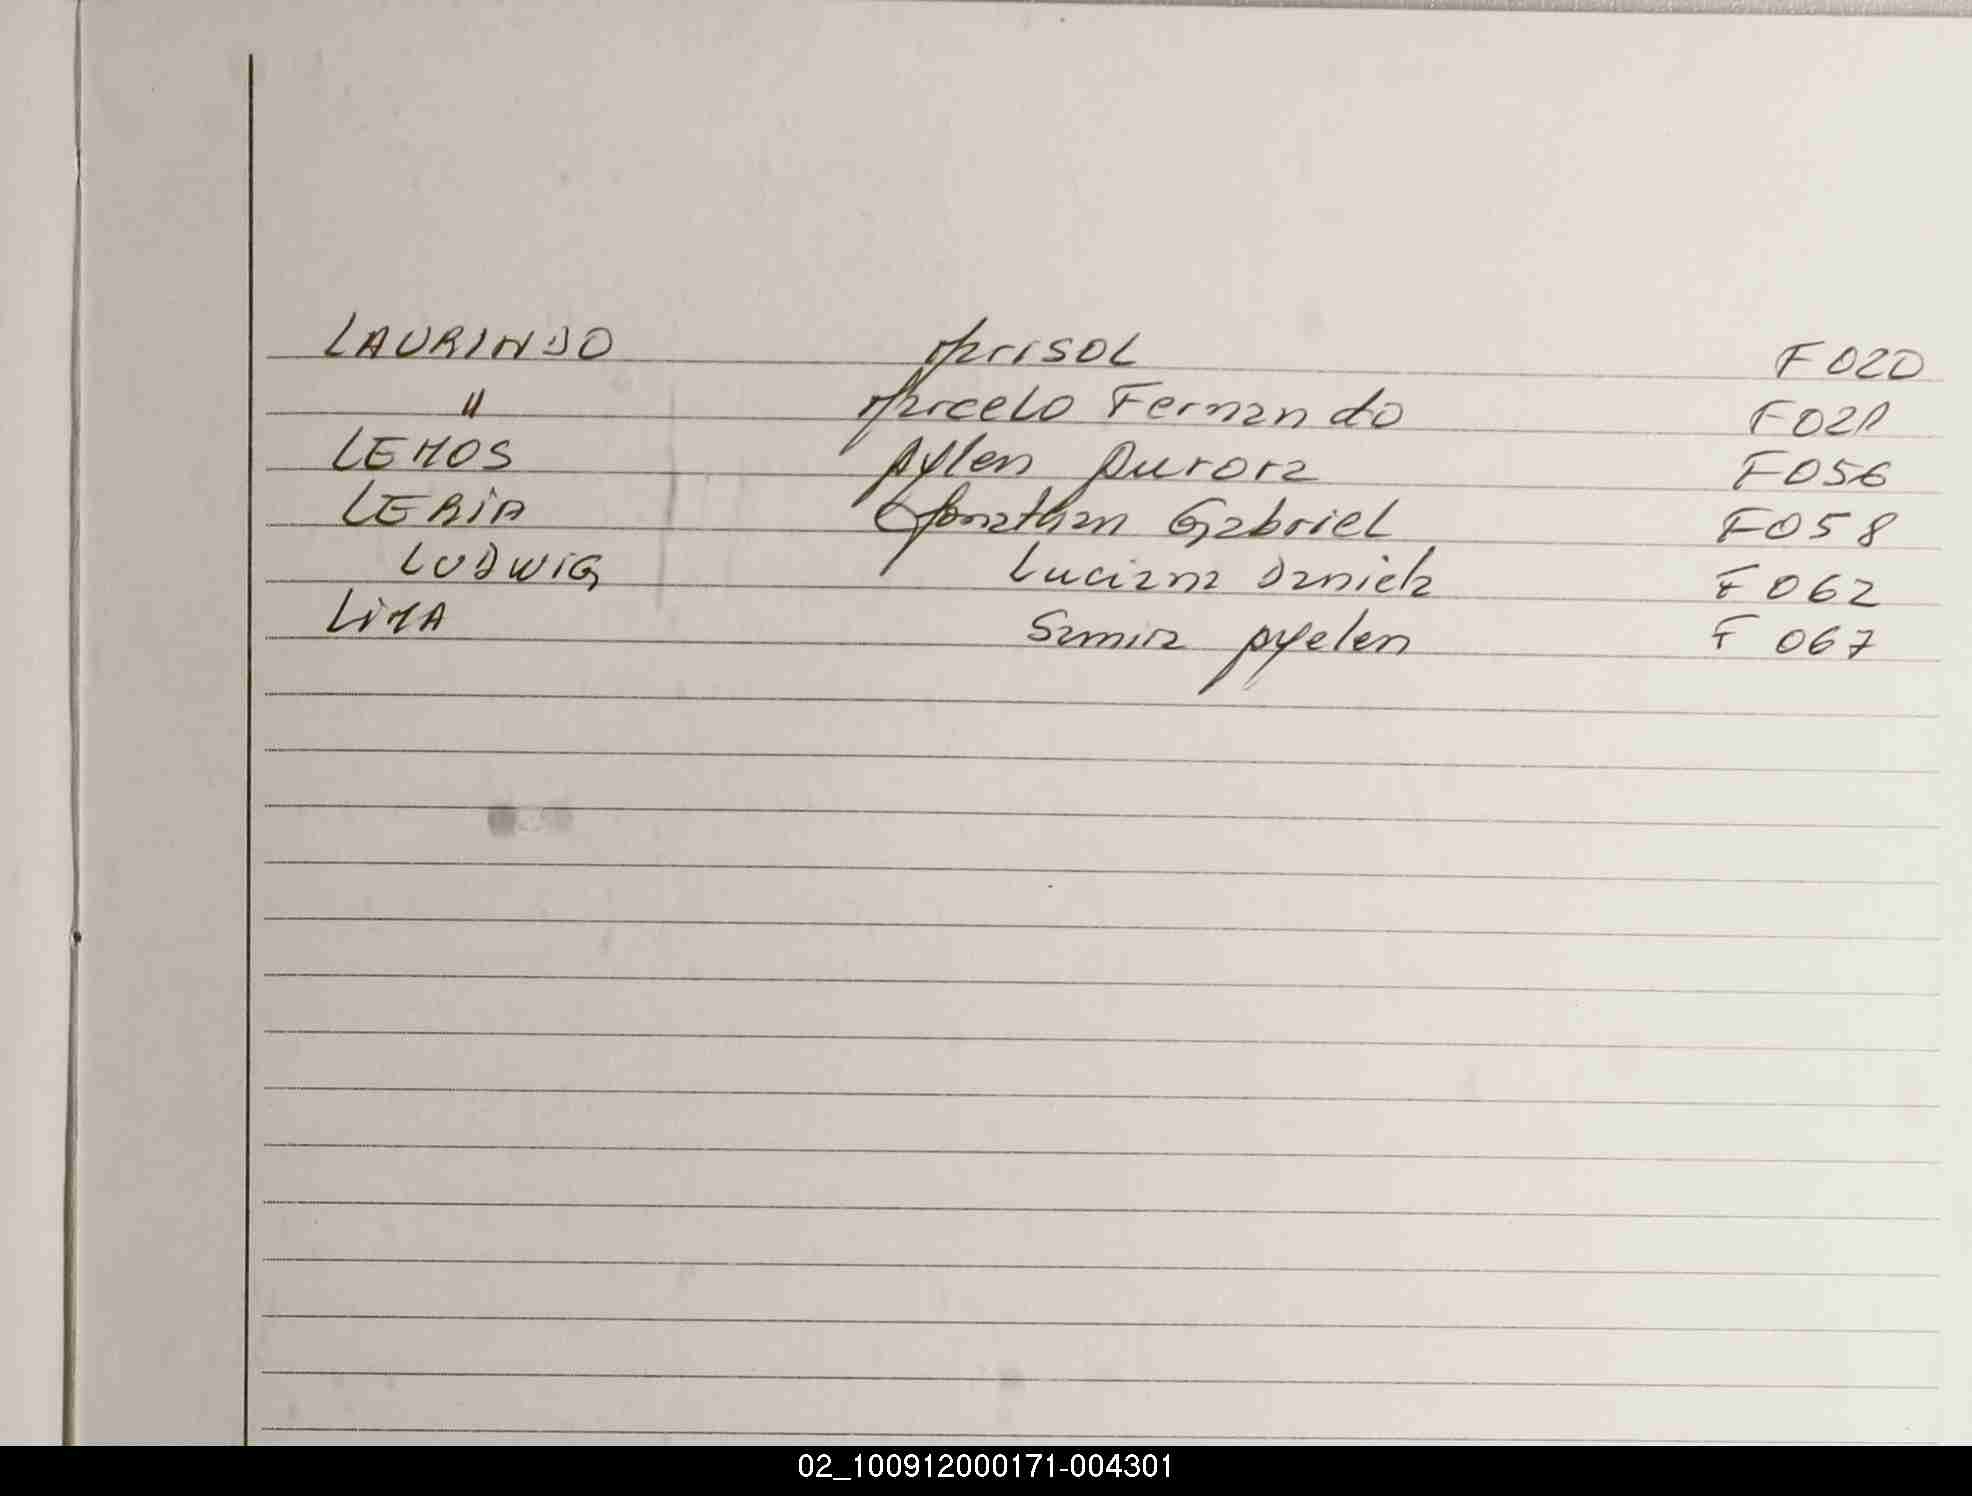 LAURINDO Marisol F020
" Marcelo Fernando F021
LEMOS Aylen Aurora F056
LERIA Jonathan Gabriel F058
LUDWIG Luciana Daniela F062
LIMA Samira Ayelen F067
02_100912000171-004301